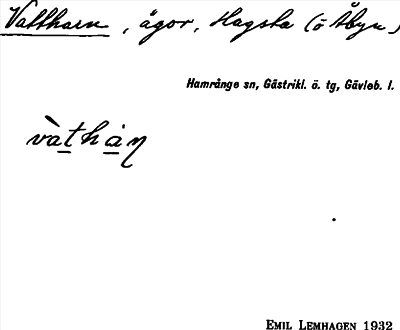 Vattharn, ägor, Hagsta (ö Åbyn)
Hamrånge sn, Gästrikl. ö. tg, Gävleb. l.
vàthàṇ
EMIL LEMHAGEN 1932